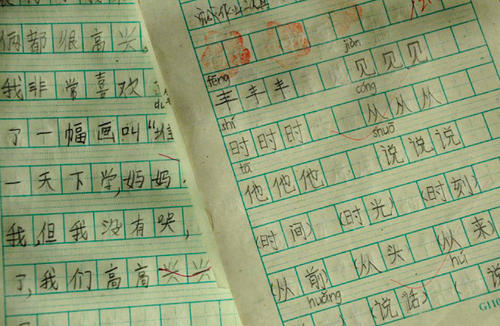 俩都很高兴,
我非常喜欢
了一幅画叫“
一天下学,妈妈
我,但我没有哭,
了,我们高高兴兴
jiàn
fēng
丰丰丰 见见见
cóng
shí
时时时 从从从
shuō
tā
他他他 说说说
(时间)(时光)(时刻)
(从前)(从头)(从来)
huà
(说话)(说